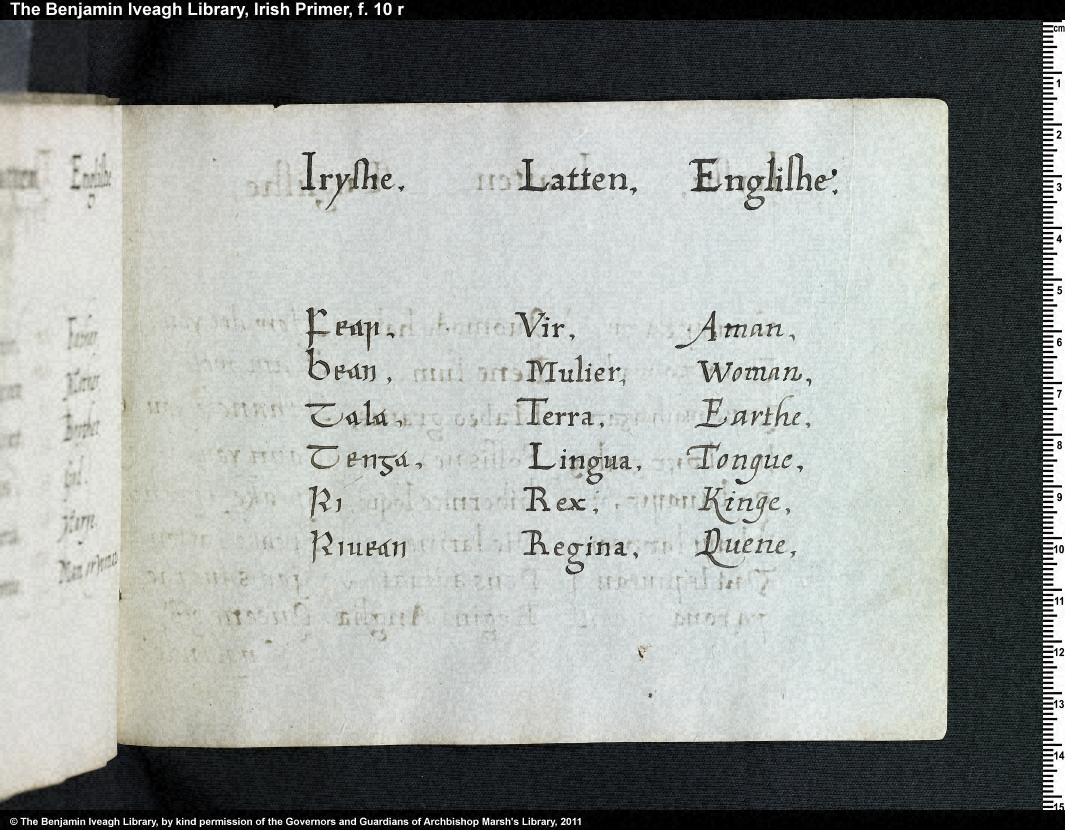 The Benjamin Iveagh Library, Irish Primer, f. 10 r
Iryſhe, Latten, Engliſhe:
Fear, Vir, A man,
bean, Mulier, Woman,
Tala, Terra, Earthe,
Tenga, Lingua, Tongue,
Ri Rex, Kinge,
Riuean Regina, Quene,
cm
1
2
3
4
5
6
7
8
9
10
11
12
13
14
15
© The Benjamin Iveagh Library, by kind permission of the Governors and Guardians of Archbishop Marsh's Library, 2011